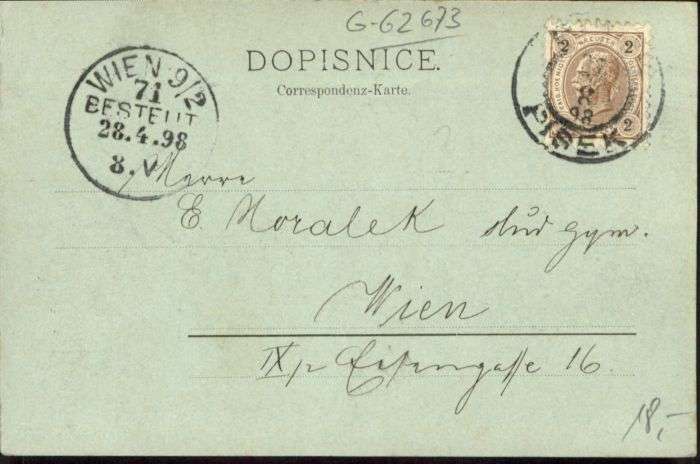 G-62673
DOPISNICE.
Correspondenz-Karte.
WIEN 9/2
71
BESTELLT
28.4.98
8.V
2 2
2
PISEK
98
Herrn
E. Moralek stud gym.
Wien
IX/2 Eisengasse 16.
18,-